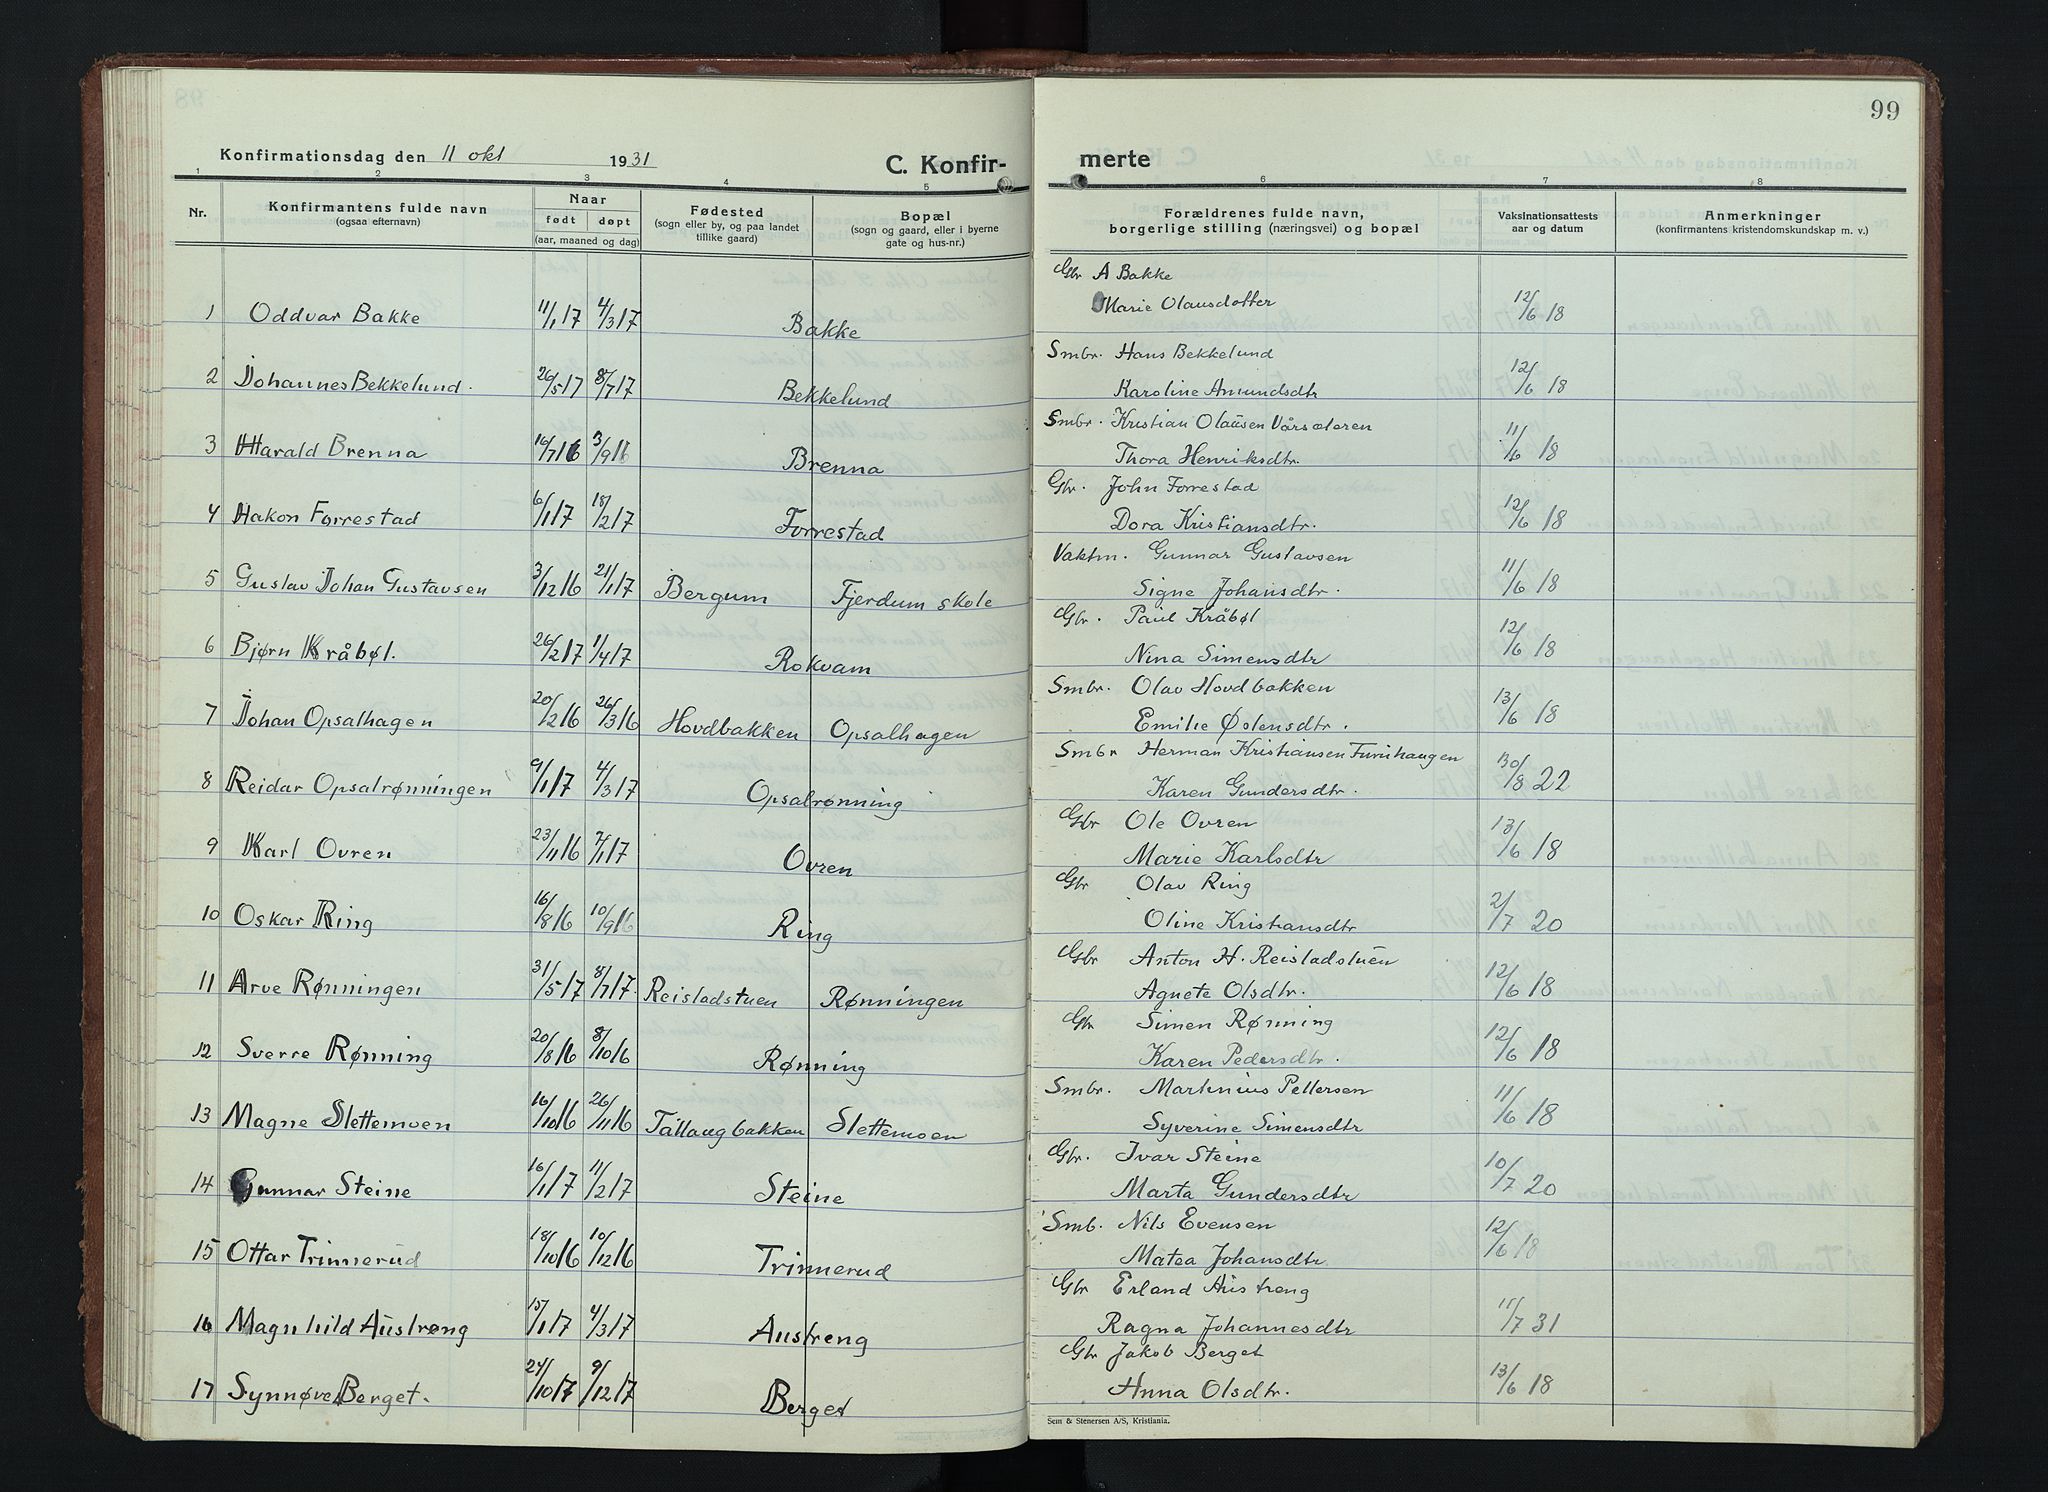 99
Konfirmationsdag den 11 okt 1931
C. Konfir-
merte
1 2 3 4 5 6 7 8
Nr.
Konfirmantens fulde navn
(ogsaa efternavn)
Naar
født døpt
(aar, maaned og dag)
Fødested
(sogn eller by, og paa landet
tillike gaard)
Bopæl
(sogn og gaard, eller i byerne
gate og hus-nr.)
Forældrenes fulde navn,
borgerlige stilling (næringsvei) og bopæl
Vaksinationsattests
aar og datum
Anmerkninger
(konfirmantens kristendomskundskap m. v.)
Gbr A Bakke
1 Oddvar Bakke 11/1 17 4/3 17 Bakke Marie Olausdotter 12/6 18
Smbr. Hans Bekkelund
2 Johannes Bekkelund. 26/5 17 8/7 17 Bekkelund Karoline Amundsdtr 12/6 18
Smbr. Kristian Olausen Vårsæteren
3 Harald Brenna 16/7 16 3/9 16 Brenna Thora Henriksdtr. 11/6 18
Gbr. John Forrestad
4 Hakon Forrestad 6/1 17 18/2 17 Forrestad Dora Kristiansdtr. 12/6 18
Vaktm. Gunnar Gustavsen
5 Gustav Johan Gustavsen 3/12 16 21/1 17 Bergum Fjerdum skole Signe Johansdtr. 11/6 18
Gbr. Paul Kråbøl
6 Bjørn Kråbøl. 26/2 17 1/4 17 Rokvam Nina Simensdtr 12/6 18
Smbr. Olav Hovdbakken
7 Johan Opsalhagen 20/2 16 26/3 16 Hovdbakken Opsalhagen Emilie Østensdtr. 13/6 18
Smbr Herman Kristiansen Furuhaugen
8 Reidar Opsalrønningen 9/1 17 4/3 17 Opsalrønning Karen Gundersdtr. 30/8 22
Gbr Ole Ovren
9 Karl Ovren 23/11 16 7/1 17 Ovren Marie Karlsdtr 13/6 18
Gbr Olav Ring
10 Oskar Ring 16/8 16 10/9 16 Ring Oline Kristiansdtr 2/7 20
Gbr Anton H. Reistadstuen
11 Arve Rønningen 31/5 17 8/7 17. Reistadstuen Rønningen Agnete Olsdtr. 12/6 18
Gbr Simen Rønning
12 Sverre Rønning 20/8 16 8/10 16 Rønning Karen Pedersdtr. 12/6 18
Smbr. Martinius Pettersen
13 Magne Slettemoen 16/10 16 26/11 16 Tållaugbakken Slettemoen Syverine Simensdtr 11/6 18
Gbr. Ivar Steine
14 Gunnar Steine 16/1 17 11/2 17 Steine Marta Gundersdtr 10/7 20
Smb. Nils Evensen
15 Ottar Trinnerud 18/10 16 10/12 16 Trinnerud Matea Johansdtr. 12/6 18
Gbr Erland Austreng
16 Magnhild Austreng 15/1 17 4/3 17 Austreng Ragna Johannesdtr 11/7 31
Gbr Jakob Berget
17 Synnøve Berget. 24/10 17 9/12 17 Berget Anna Olsdtr. 13/6 18
Sem & Stenersen A/S, Kristiania.